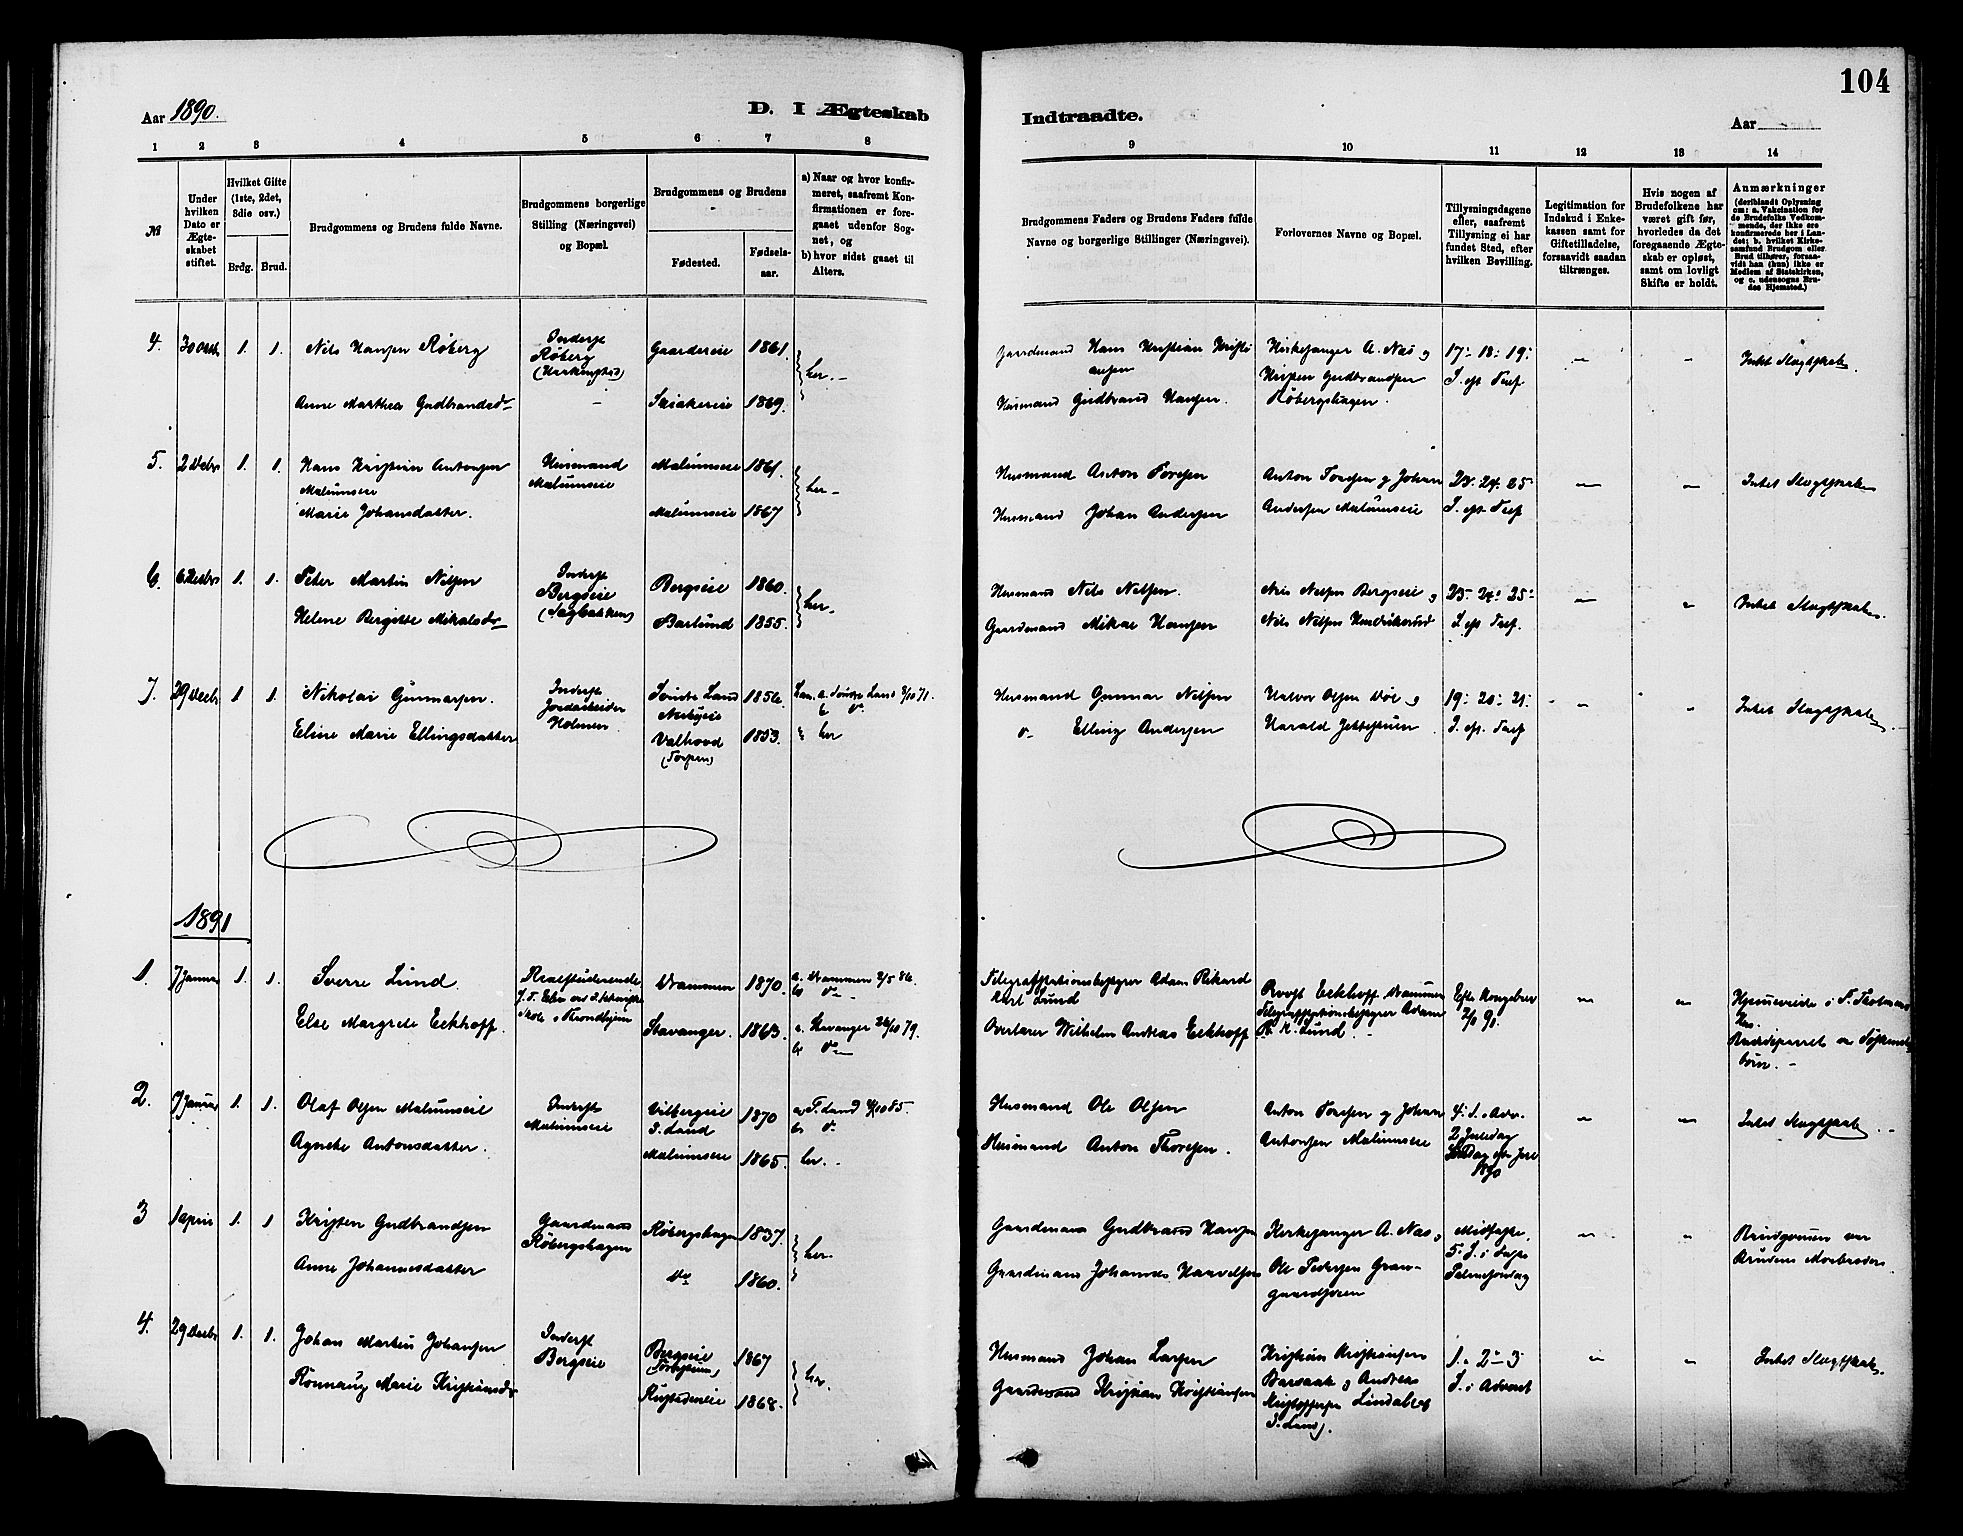 104
Aar 1890.
D. I Ægteskab
Indtraadte.
Aar
1 2 3 4 5 6 7 8
9 10 11 12 13 14
№
Under hvilken Dato er Ægteskabet stiftet.
Hvilket Gifte (1ste, 2det, 3die osv.)
Brdg. Brud.
Brudgommens og Brudens fulde Navne.
Brudgommens borgerlige Stilling (Næringsvei) og Bopæl.
Brudgommens og Brudens
Fødested.
Fødselsaar.
a) Naar og hvor konfirmeret, saafremt Konfirmationen er foregaaet udenfor Sognet, og
b) hvor sidst gaaet til Alters.
Brudgommens Faders og Brudens Faders fulde Navne og borgerlige Stillinger (Næringsvei).
Forlovernes Navne og Bopæl.
Tillysningsdagene eller, saafremt Tillysning ei har fundet Sted, efter hvilken Bevilling.
Legitimation for Indskud i Enkekassen samt for Giftetilladelse, forsaavidt saadan tiltrænges.
Hvis nogen af Brudefolkene har været gift før, hvorledes da det foregaaende Ægteskab er opløst, samt om lovligt Skifte er holdt.
Anmærkninger (deriblandt Oplysning om: a. Vakcination for de Brudefolks Vedkommende, der ikke ere konfirmerede her i Landet; b. hvilket Kirkesamfund Brudgom eller Brud tilhører, forsaavidt han (hun) ikke er Medlem af Statskirken, og c. udensogns Brudes Hjemsted.)
4. 30 1. 1. Nils Hansen Røberg Inderst Røberg Gaardereie 1861. her.
Hans Kristian Kirkesanger A. Næs og 17- 18- 19- Intet Slægtskab.
Anne Marthea Gudbrandsdr Skiakereie 1869.
Husmand Gudbrand Hansen. Kristen Gudbrandsen Røbergshagen. S. eft. Tref
5. 2 Decbr 1. 1. Hans Kristian Antonsen Malumseie Husmand Malumseie Malumseie 1861. her
Husmand Anton Toresen Anton Toresen og Johan 23. 24. 25 Intet Slægtskab
Marie Johansdatter. Malumseie 1867
Husmand Johan Andersen Andersen Malumseie S. eft. Tref
6. 6 Decbr 1. 1. Peter Martin Nilsen Inderst Bergseie (Sagbakken) Bergseie 1860. her.
Husmand Nils Nilsen. Nils Nilsen Bergseie og 23- 24- 25- Intet Slægtskab.
Helene Bergitte Mikalsdr Barlund 1855.
Gaardmand Mikal Hansen Nils Nilsen S. eft. Tref.
7. 29 Decbr 1 1. Nikolai Gunnarsen. Inderst Jordarbeider Holmen Søndre Land 1856.
Husmand Gunnar Nilsen Halvor Olsen og 19- 20- 21- Intet Slægtskab
Eline Marie Ellingsdatter Valhovd (Torpen) 1853. her
do Elling Andersen Harald S. eft. Tref
1891
1. 7 Januar 1. 1. Sverre Lund. Realstuderende Drammen 1870. a. Drammen 2/5 86. b do
Telegrafstationsbestyrer Adam Rikard Karl Lund Eckhoff Drammen Efter Kongebrev 2/1 91.
Else Margrete Eckhoff. Skole i Trondhjem Stavanger. 1863. a. Stavanger 26/10 79. b do
Overlærer Wilhelm Andreas Eckhoff Telegrafstationsbestyrer Adam R. K. Lund.
Brudeparret er Søskendebørn.
2. 7 Januar 1. 1. Olaf Olsen Malumseie Inderst Malumseie Vilbergseie S. Land 1870
Husmand Ole Olsen Anton Toresen og Johan 4. S. i Adv. Intet Slægtskab
Agnethe Antonsdatter. Malumseie 1865. her.
Husmand Anton Thoresen. Antonsen Malumseie 2 Juledag Søndag efter Jul 1890
3 1 April 1. 1 Kristen Gudbrandsen Gaardmand Røbergshagen Røbergshagen 1837. her.
Gaardmand Gudbrand Hansen Kirkesanger A. Næs, Midfaste, Brudgommen var Brudens Morbroder.
Anne Johannesdatter do 1860.
Gaardmand Johannes Ole Pedersen 5 S. i Faste Palmesøndag
4. 29 Decbr 1. 1. Johan Martin Johansen Inderst Bergseie Bergseie 1867 her.
Husmand Johan Larsen Kristian Kristiansen 1. 2- 3 Intet Slægtskab.
Rønnaug Marie Kristiansdr 1868.
Gaardmand Kristian Kristiansen og Andreas Kristoffersen S. Land. S. i Advent